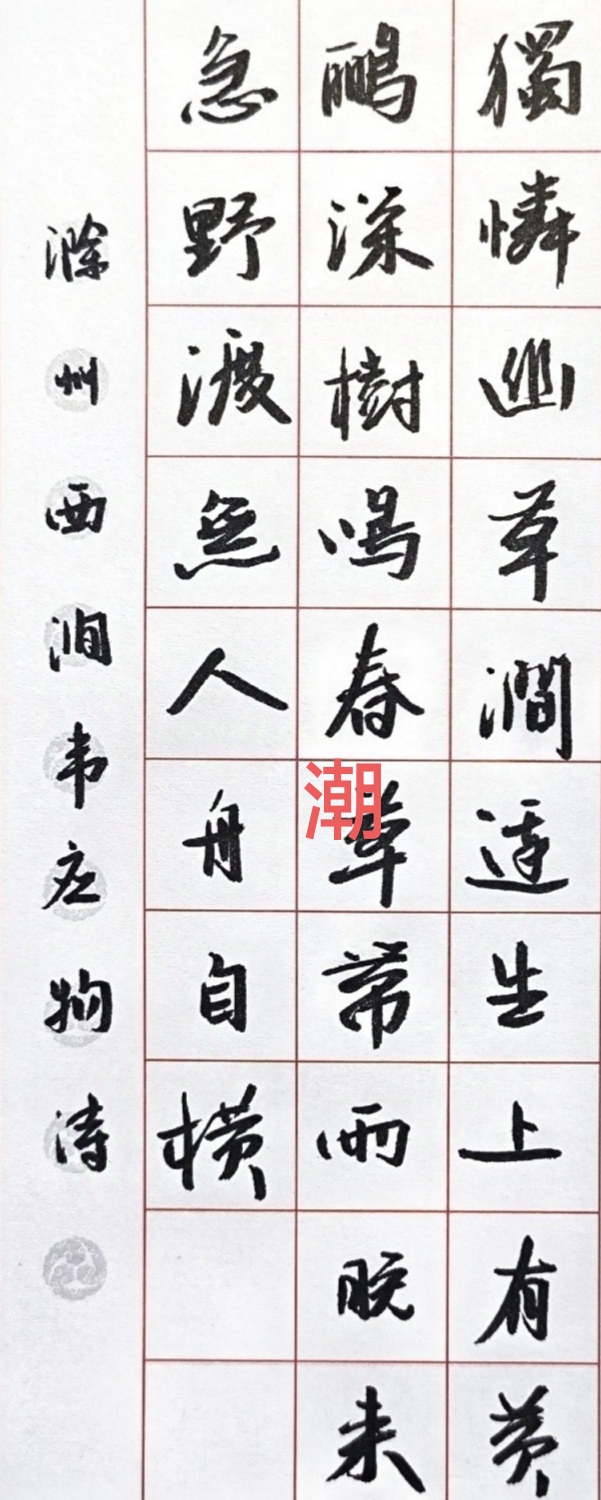 獨憐幽草澗邊生上有黄
鸝深樹鳴春草潮帶雨晚来
急野渡無人舟自横
滁州西涧韦应物诗